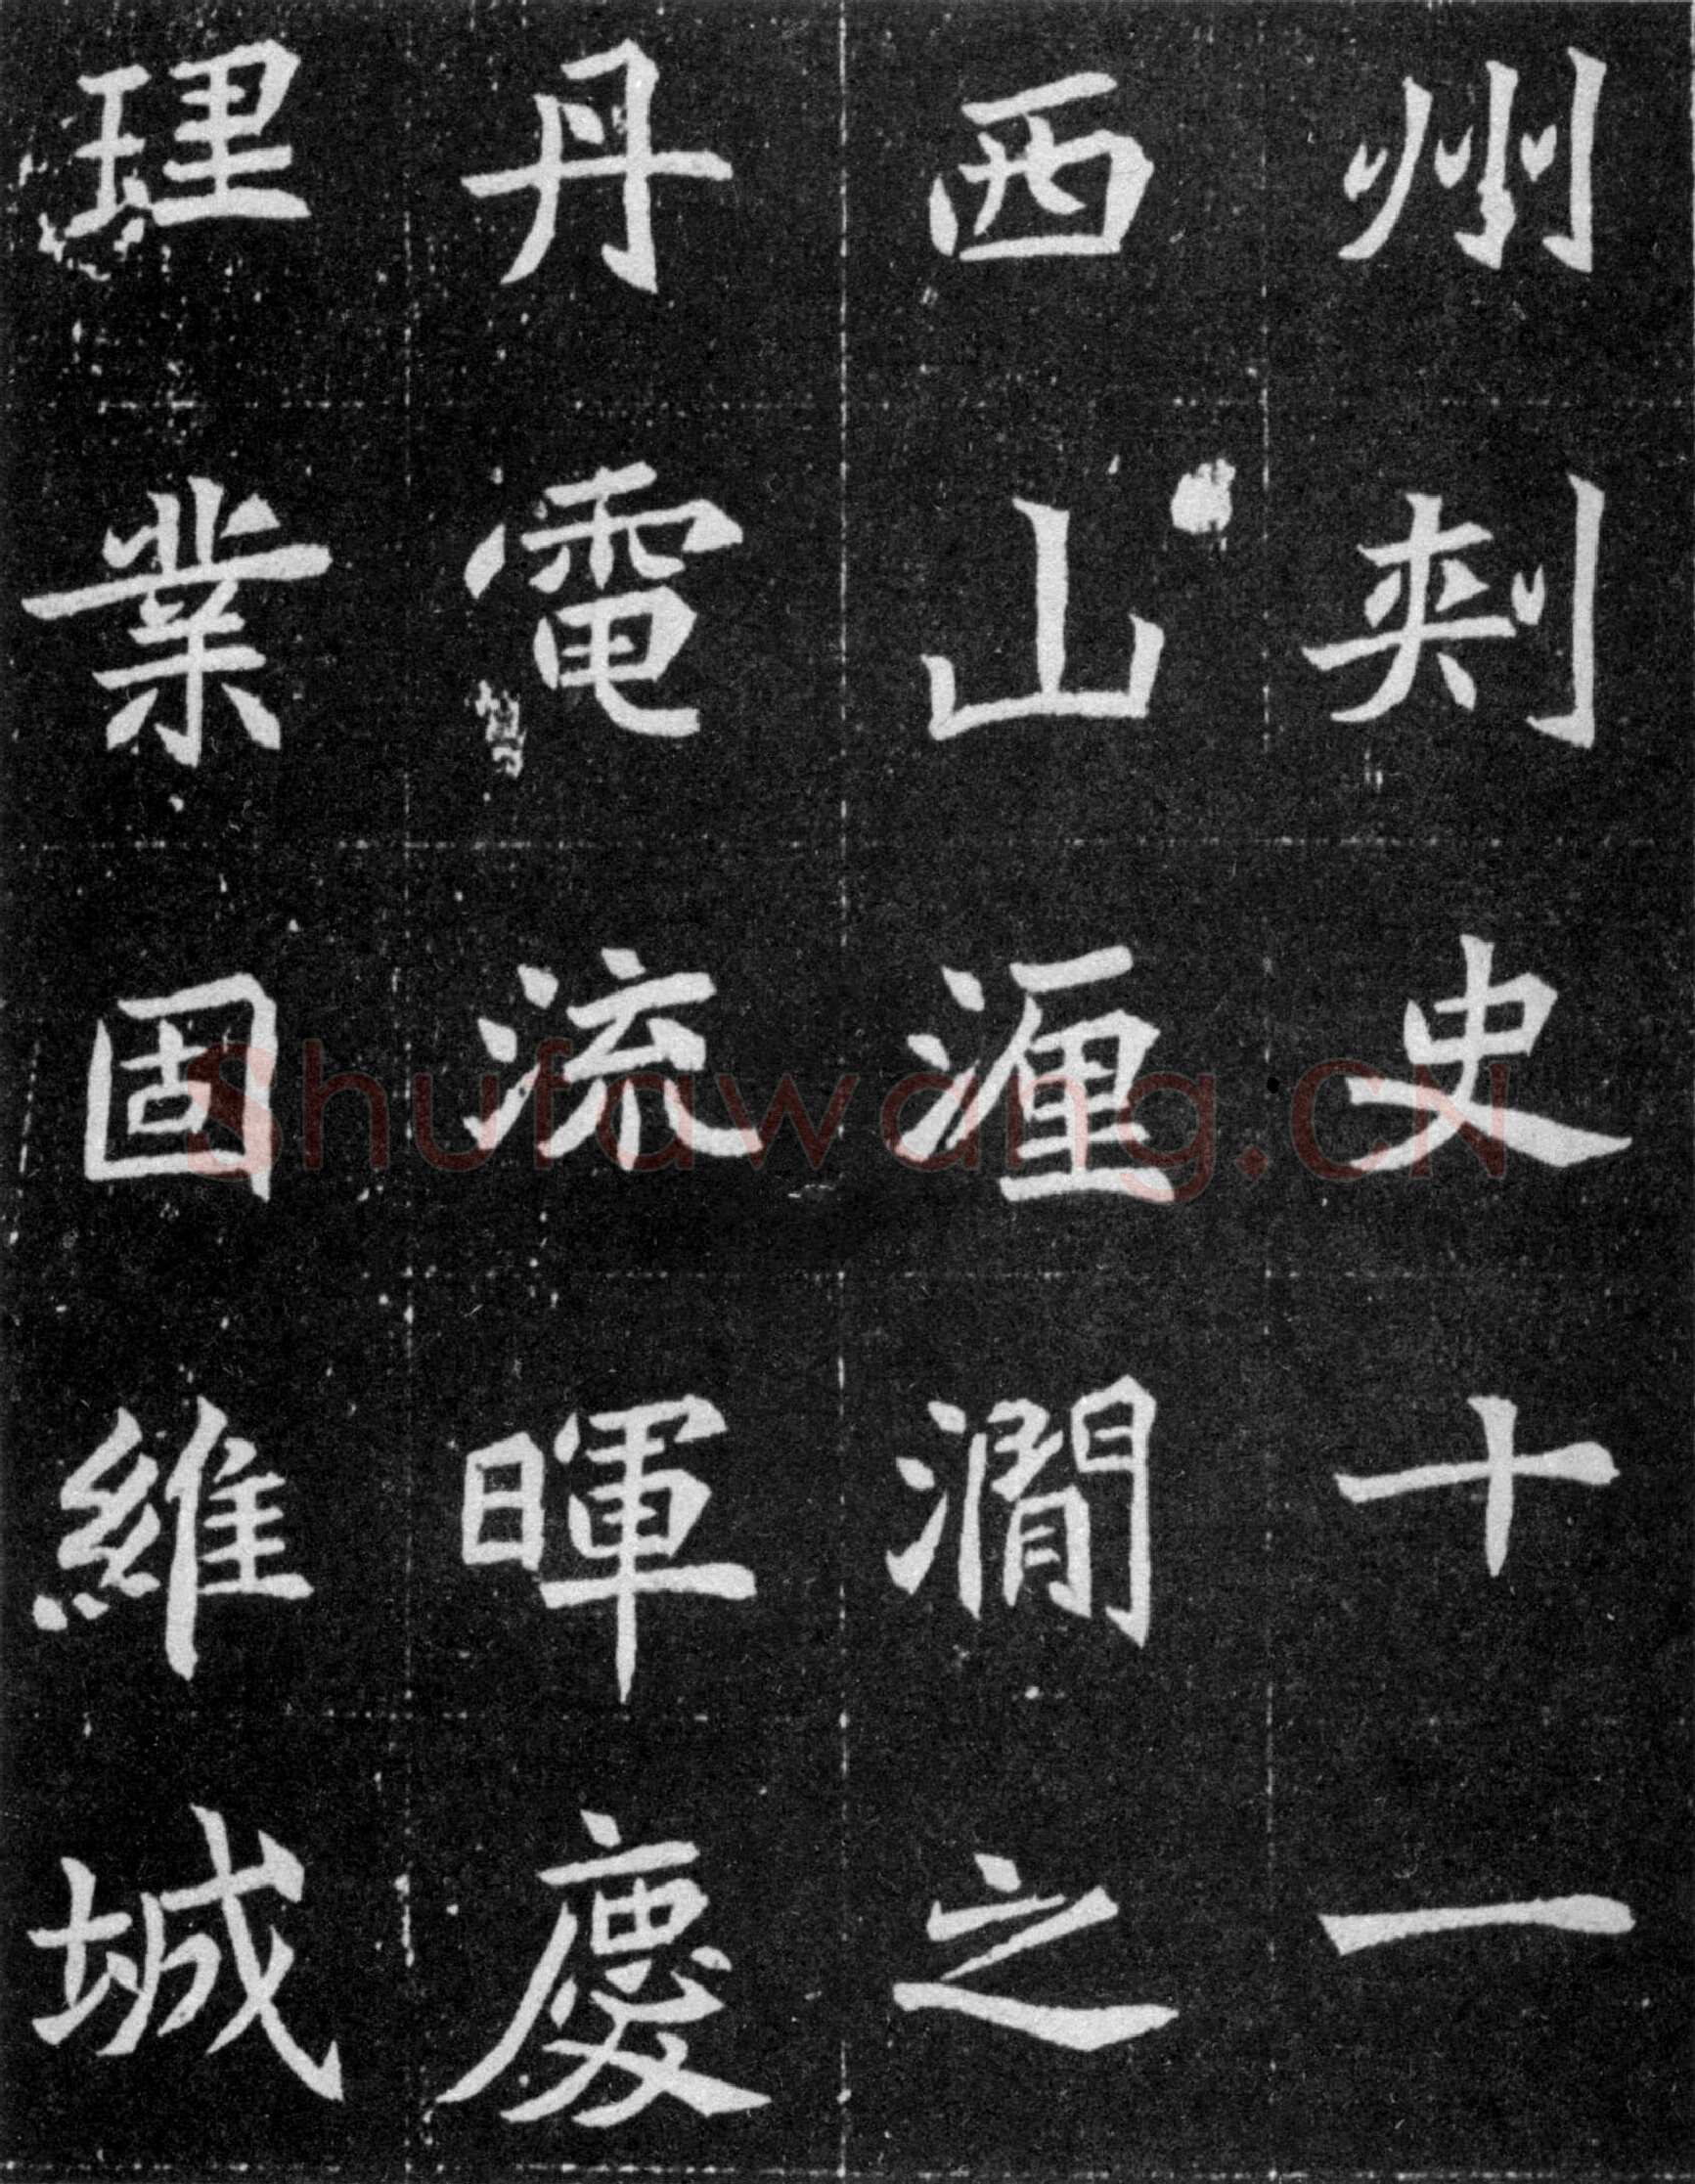 州刾史十一
西山湹澗之
丹電流暉慶
理業固維城
Shufawang.CN